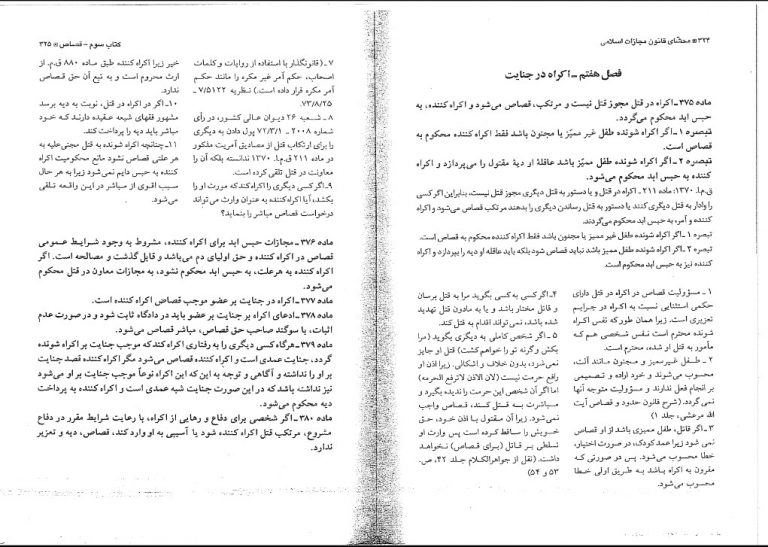 ۳۲۴ ¤ محشّای قانون مجازات اسلامی
فصل هفتم ـ اکراه در جنایت
ماده ۳۷۵ ـ اکراه در قتل مجوز قتل نیست و مرتکب، قصاص می‌شود و اکراه کننده، به
حبس ابد محکوم می‌گردد.
تبصره ۱ ـ اگر اکراه شونده طفل غیر ممیّز یا مجنون باشد فقط اکراه کننده محکوم به
قصاص است.
تبصره ۲ ـ اگر اکراه شونده طفل ممیّز باشد عاقلهٔ او دیهٔ مقتول را می‌پردازد و اکراه
کننده به حبس ابد محکوم می‌شود.
ق.م.ا. ۱۳۷۰: ماده ۲۱۱ ـ اکراه در قتل و یا دستور به قتل دیگری مجوز قتل نیست، بنابراین اگر کسی
را وادار به قتل دیگری کنند یا دستور به قتل رساندن دیگری را بدهند مرتکب قصاص می‌شود و اکراه
کننده و آمر، به حبس ابد محکوم می‌گردند.
تبصره ۱ ـ اگر اکراه شونده طفل غیر ممیز یا مجنون باشد فقط اکراه کننده محکوم به قصاص است.
تبصره ۲ ـ اگر اکراه شونده طفل ممیز باشد نباید قصاص شود بلکه باید عاقله او دیه را بپردازد و اکراه
کننده نیز به حبس ابد محکوم است.
۱ ـ مسؤولیت قصاص در اکراه در قتل دارای
حکمی استثنایی نسبت به اکراه در جرایم
تعزیری است. زیرا همان طور که نفس اکراه
شونده محترم است نفس شخصی هم که
مأمور به قتل او شده، محترم است.
۲ ـ طفل غیرممیز و مجنون مانند آلت،
محسوب می‌شوند و خود اراده و تصمیمی
بر انجام فعل ندارند و مسؤولیت متوجه آنها
نمی گردد. (شرح قانون حدود و قصاص آیت
الله مرعشی، جلد ۱)
۳ ـ اگر قاتل، طفل ممیزی باشد از او قصاص
نمی شود زیرا عمد کودک، در صورت اختیار،
خطا محسوب می‌شود. پس در صورتی که
مقرون به اکراه باشد به طریق اولی خطا
محسوب می‌شود.
۴ ـ اگر کسی به کسی بگوید مرا به قتل برسان
و قاتل مختار باشد و یا به مادون قتل تهدید
شده باشد، نمی‌تواند اقدام به قتل کند.
۵ ـ اگر شخص کاملی به دیگری بگوید (مرا
بکش وگرنه تو را خواهم کشت) قتل او جایز
نمی‌شود، بدون خلاف و اشکالی. زیرا اذن او
رافع حرمت نیست (لان الاذن لاترفع الحرمه)
اما اگر آن شخص این حرمت را ندیده بگیرد و
مباشرت به قتل کند، قصاص واجب
نمی‌شود. زیرا آن مقتول با اذن خود، حق
خویش را ساقط کرده است پس وارث او
تسلطی بر قاتل (برای قصاص) نخواهد
داشت. (نقل از جواهرالکلام جلد ۴۲، ص.
۵۳ و ۵۴)
کتاب سوم - قصاص ¤ ۳۲۵
۷ ـ (قانونگذار با استفاده از روایات و کلمات
اصحاب، حکم آمر غیر مکره را مانند حکم
آمر مکره قرار داده است.) نظریه ۷/۵۱۲۲ ـ
۷۳/۸/۲۵.
۸ ـ شعبه ۲۶ دیوان عالی کشور، در رأی
شماره ۲۰۰۸ ـ ۷۲/۳/۱ پول دادن به دیگری
را برای ارتکاب قتل از مصادیق آمریت مذکور
در ماده ۲۱۱ ق.م.ا. ۱۳۷۰ ندانسته بلکه آن را
معاونت در قتل تلقی کرده است.
۹ ـ گر کسی دیگری را اکراه کند که مورث او را
بکشد، آیا اکراه کننده به عنوان وارث می‌تواند
درخواست قصاص مباشر را بنماید؟
خیر زیرا اکراه کننده طبق ماده ۸۸۰ ق.م. از
ارث محروم است و به تبع آن حق قصاص
ندارد.
۱۰ ـ اگر در اکراه در قتل، نوبت به دیه برسد
مشهور فقهای شیعه عقیده دارند که خود
مباشر باید دیه را پرداخت کند.
۱۱ ـ چنانچه اکراه شونده به قتل مجنی‌علیه به
هر علتی قصاص نشود مانع محکومیت اکراه
کننده به حبس دایم نمی‌شود زیرا به هر حال
سبب اقوی از مباشر در این واقعه تلقی
می‌شود.
ماده ۳۷۶ ـ مجازات حبس ابد برای اکراه کننده، مشروط به وجود شرایط عمومی
قصاص در اکراه کننده و حق اولیای دم می‌باشد و قابل گذشت و مصالحه است. اگر
اکراه کننده به هر علت، به حبس ابد محکوم نشود، به مجازات معاون در قتل محکوم
می‌شود.
ماده ۳۷۷ ـ اکراه در جنایت بر عضو موجب قصاص اکراه کننده است.
ماده ۳۷۸ ـ ادعای اکراه بر جنایت بر عضو باید در دادگاه ثابت شود و در صورت عدم
اثبات، با سوگند صاحب حق قصاص، مباشر قصاص می‌شود.
ماده ۳۷۹ ـ هرگاه کسی دیگری را به رفتاری اکراه کند که موجب جنایت بر اکراه شونده
گردد، جنایت عمدی است و اکراه کننده قصاص می‌شود مگر اکراه کننده قصد جنایت
بر او را نداشته و آگاهی و توجه به این که این اکراه نوعاً موجب جنایت بر او می‌شود
نیز نداشته باشد که در این صورت جنایت شبه عمدی است و اکراه کننده به پرداخت
دیه محکوم می‌شود.
ماده ۳۸۰ ـ اگر شخصی برای دفاع و رهایی از اکراه، با رعایت شرایط مقرر در دفاع
مشروع، مرتکب قتل اکراه کننده شود یا آسیبی به او وارد کند، قصاص، دیه و تعزیر
ندارد.